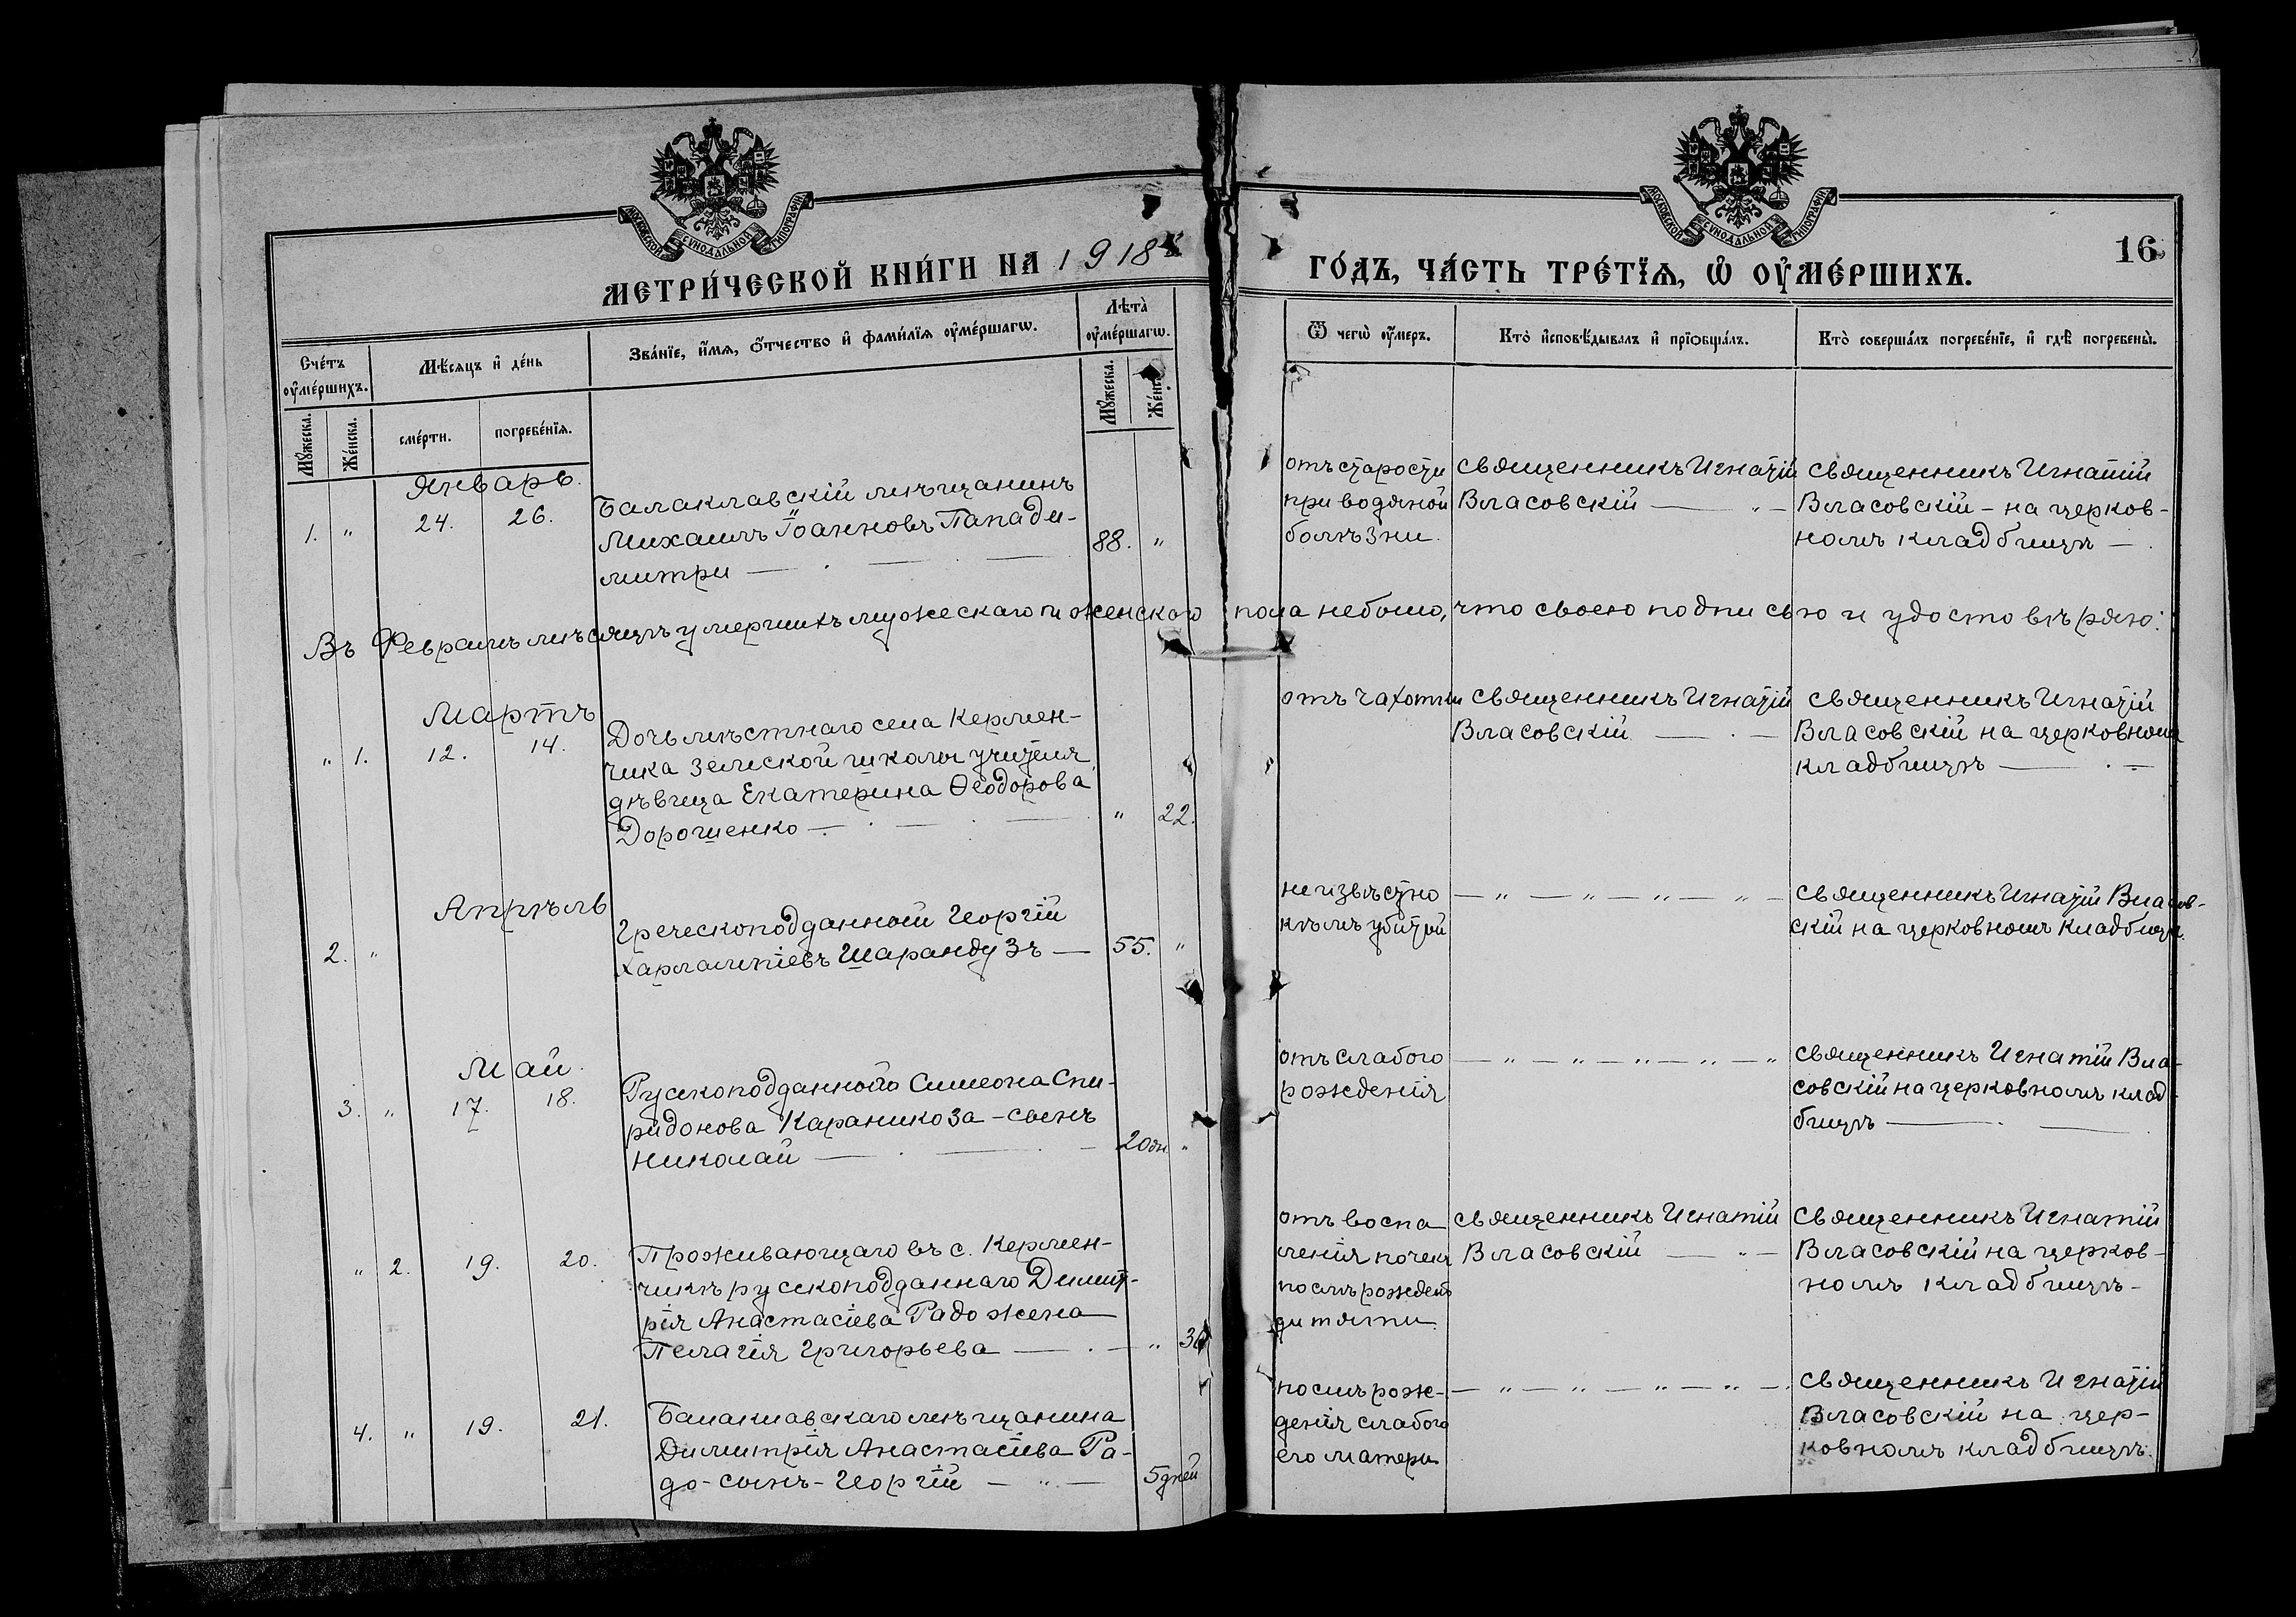 МОСКОВСКОЙ СѴНОДАЛЬНОЙ ТИПОГРАФІИ
МОСКОВСКОЙ СѴНОДАЛЬНОЙ ТИПОГРАФІИ
МЕТРИ́ЧЕСКОЙ КНИ́ГИ НА 1918
ГО́ДЪ, ЧА́СТЬ ТРЕ́ТЇѦ, Ѡ҆ ОУ҆МЕ́РШИХЪ.
16
Сче́тъ оу҆ме́ршихъ.
Мѣ́сяцъ и҆ де́нь
Зва́нїе, и҆́мѧ, ѻ҆́тчество и҆ фами́лїѧ оу҆ме́ршагѡ.
Лѣ́та оу҆ме́ршагѡ.
Ѿ чегѡ̀ оу҆́меръ.
Кто̀ и҆сповѣ́дывалъ и҆ прїѡбща́лъ.
Кто̀ соверша́лъ погребе́нїе, и҆ гдѣ̀ погребены̀.
Мꙋ́жеска.
Же́нска.
сме́рти.
погребе́нїѧ.
Мꙋ́жеска.
Же́нска.
Январь.
1. " 24. 26.
Балаклавскій мѣщанинъ
Михаилъ Іоанновъ Папади-
митри —
88. "
отъ старости
при водяной
болѣзни.
Священникъ Игнатій
Власовскій — " —
Священникъ Игнатій
Власовскій – на церков-
номъ кладбищѣ —
Въ Февралѣ мѣсяцѣ умершихъ мужескаго и женскаго пола не было, что своею подписью и удостовѣряю:
Мартъ
" 1. 12. 14.
Дочь мѣстнаго села Кермен-
чика земской школы учителя
дѣвица Екатерина Ѳеодорова
Дорошенко —
" 22.
отъ чахотки
Священникъ Игнатій
Власовскій — . —
Священникъ Игнатій
Власовскій на церковномъ
кладбищѣ —
Апрѣль
2. "
Греческоподданный Георгій
Харлампіевъ Шарандузъ —
55. "
неизвѣстно
кѣмъ убитый
— " — " — " — " —
Священникъ Игнатій Власов-
скій на церковномъ кладбищѣ.
Май.
3. " 17. 18.
Русскоподданного Симеона Спи-
ридонова Караникоза – сынъ
Николай —
20 дн. "
отъ слабого
рожденія
— " — " — " — " — "
Священникъ Игнатій Вла-
совскій на церковномъ клад-
бищѣ —
" 2. 19. 20.
Проживающаго въ с. Кермен-
чикѣ русскоподданнаго Димит-
рія Анастасіева Радо жена
Пелагія Григорьева —
"
отъ воспа
ленія почекъ
послѣ рожденія
дитяти.
Священникъ Игнатій
Власовскій — " —
Священникъ Игнатій
Власовскій на церков-
номъ кладбищѣ –
4. " 19. 21.
Балаклавскаго мѣщанина
Димитрія Анастасіева Ра-
до – сынъ – Георгій — " —
5 дней
послѣ рож-
денія слабого
его матери
— " — " — " — " —
Священникъ Игнатій
Власовскій на цер-
ковномъ кладбищѣ.